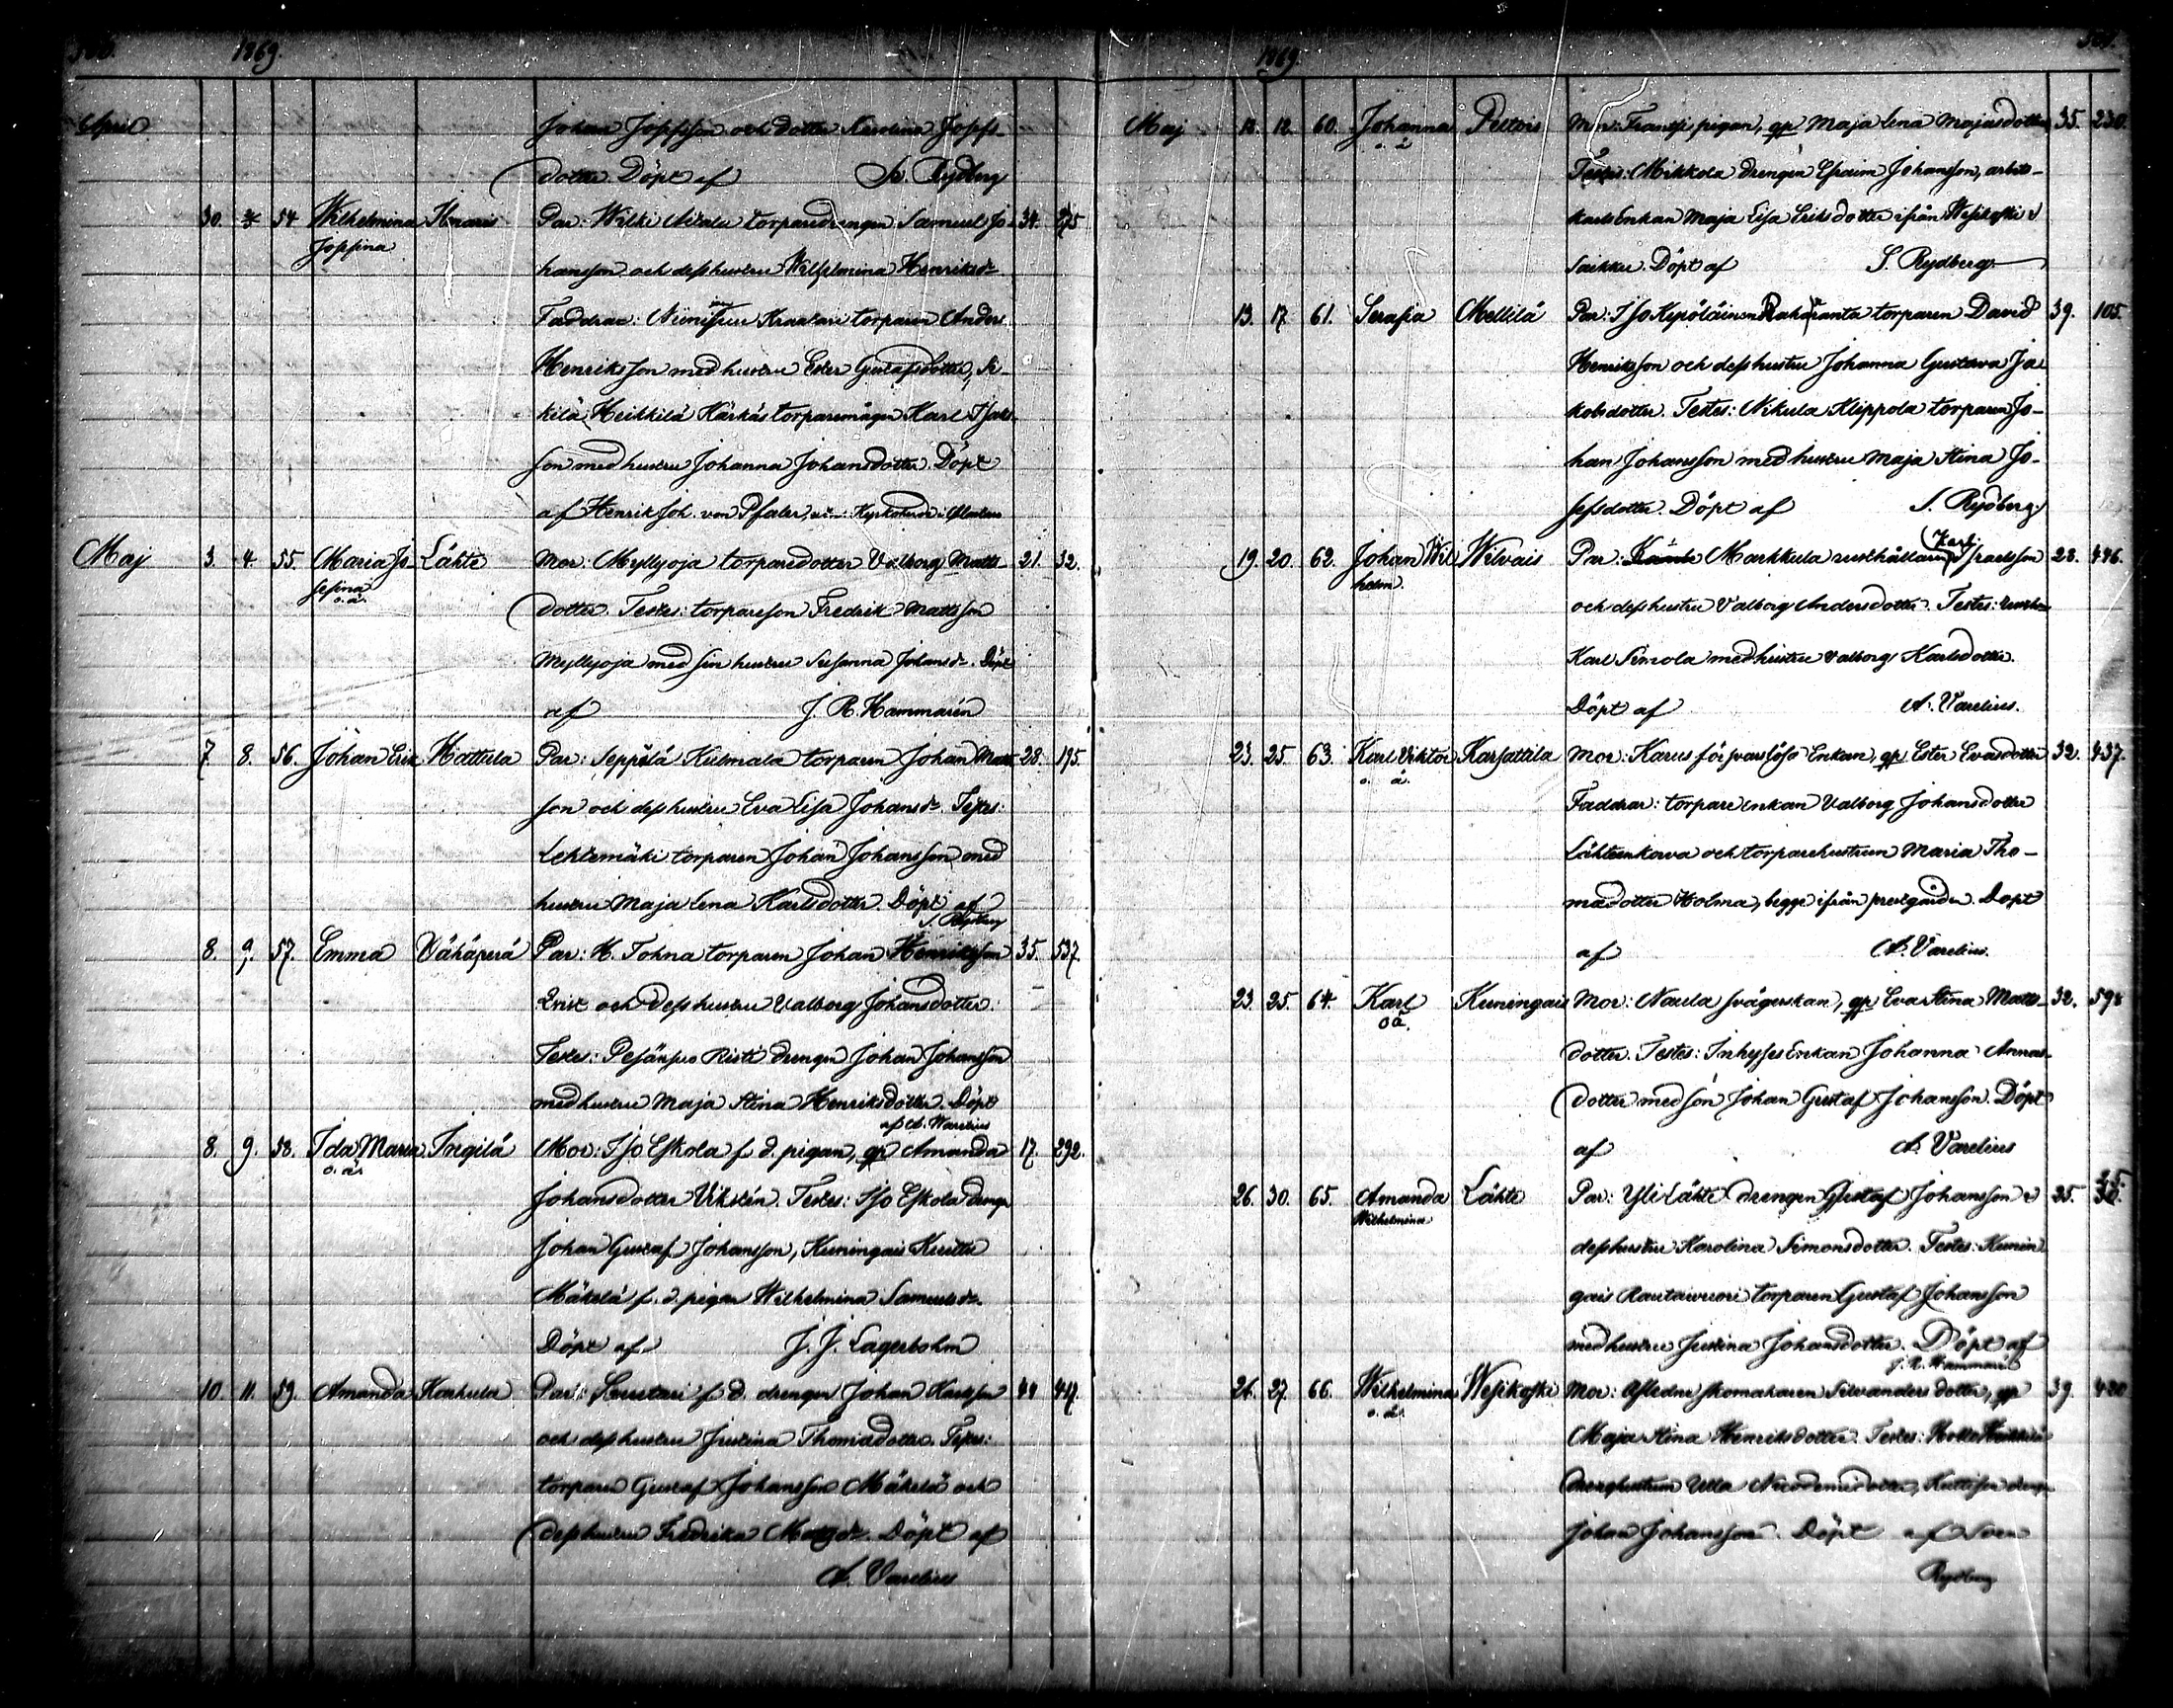 1869.
April
Johan Josefsson och dotter Karolina Josefs-
dotter. Döpt af S. Rydberg
30. 54 Wilhelmina Knaris Par: Wilki torparedrengen Samuel Jo- 34. 275
Josefina hansson och dess hustru Wilhelmina Henriksdr
Faddrar: torparen Anders
Henriksson med hustru Ester Gustafsdotter,
kilä Heikkilä Härkäs torparemågen Karl Isaks-
son med hustru Johanna Johansdotter. Döpt
af Henrik Joh. von Pfaler,
Maj 3. 4. 55. Maria Jo- Lähte Mor: Myllyoja torparedotter Valborg Matts- 21. 32.
sefina o.ä. dotter. Testes: torpareson Fredrik Mattsson
Myllyoja med sin hustru Susanna Johansdr. Döpt
af J. R. Hammarén
7. 8. 56. Johan Erik Hattula Par: Seppälä Kulmala torparen Johan Matts- 28. 195.
son och dess hustru Eva Lisa Johansdr. Testes:
Lehtemäki torparen Johan Johansson med
hustru Maja Lena Karlsdotter. Döpt af
S. Rydberg
8. 9. 57. Emma Vähäperä Par: H. Tohna torparen Johan Henriksson 35. 537.
Erik och dess hustru Valborg Johansdotter.
Testes: Pesänsuo Risti drengen Johan Johansson
med hustru Maja Stina Henriksdotter. Döpt
af A. Varelius
8. 9. 58. Ida Maria Ingilä Mor: Iso Eskola f. d. pigan, gp Amanda 17. 292.
o.ä. Johansdotter Vikstén. Testes: Iso Eskola drengen
Johan Gustaf Johansson, Kuningais Kuuttu
Mäkelä f. d. pigan Wilhelmina Samuelsdr.
Döpt af J. J. Lagerbohm
10. 11. 59. Amanda Karhula Par: f. d. drengen Johan Karlsson 44 447.
och dess hustru Justina Thomasdotter. Testes:
torparen Gustaf Johansson Mäkelä och
dess hustru Fredrika Mattsdr. Döpt af
A. Varelius
1869.
Maj 12. 60. Johanna Peltois Mor: Frantsi pigan, gp Maja Lena Majasdotter 35. 230.
o.ä. Testes: Mikkola drengen Efraim Johansson, arbets-
karls Enkan Maja Lisa Eriksdotter ifrån Wesikoski &
Saikku. Döpt af S. Rydberg.
13. 17. 61. Serafia Mellilä Par: Iso Kepöläinen Rahkaranta torparen David 39. 105.
Henriksson och dess hustru Johanna Gustava Ja-
kobsdotter. Testes: Nikula Klippola torparen Jo-
han Johansson med hustru Maja Stina Jo-
sefsdotter. Döpt af S. Rydberg.
19. 20. 62. Johan Wil- Wilvais Par: Markkula rusthållaren Karl Israelsson 28. 446.
helm. och dess hustru Valborg Andersdotter. Testes:
Karl Simola med hustru Valborg Karlsdotter.
Döpt af A. Varelius.
23. 25. 63. Karl Viktor Karsattila Mor: Karus försvarslösa Enkan, gp Ester Evasdotter 32. 437.
o. ä. Faddrar: torpare enkan Valborg Johansdotter
Lähteenkorva och torparehustrun Maria Tho-
madotter Holma, begge ifrån prestgården. Döpt
af A. Varelius.
23. 25. 64. Karl Kuningais Mor: Naula svägerskan, gp Eva Stina Matts- 32. 598
oä. dotter. Testes: Inhyses Enkan Johanna Annas-
dotter med son Johan Gustaf Johansson. Döpt
af A. Varelius
26. 30. 65. Amanda Lähte Par: Yli Lähte drengen Gustaf Johansson & 25.
Wilhelmina dess hustru Karolina Simonsdotter. Testes: Kunin-
gais Rautavuori torparen Gustaf Johansson
med hustru Justina Johansdotter. Döpt af
J. R. Hammarén
26. 27. 66. Wilhelmina Wesikoski Mor: Aflidne skomakaren Silvanders dotter, gp 39. 430
o.ä. Maja Stina Henriksdotter. Testes:
drenghustrun Ulla Nicodemidotter,
Johan Johansson. Döpt af Sven
Rydberg